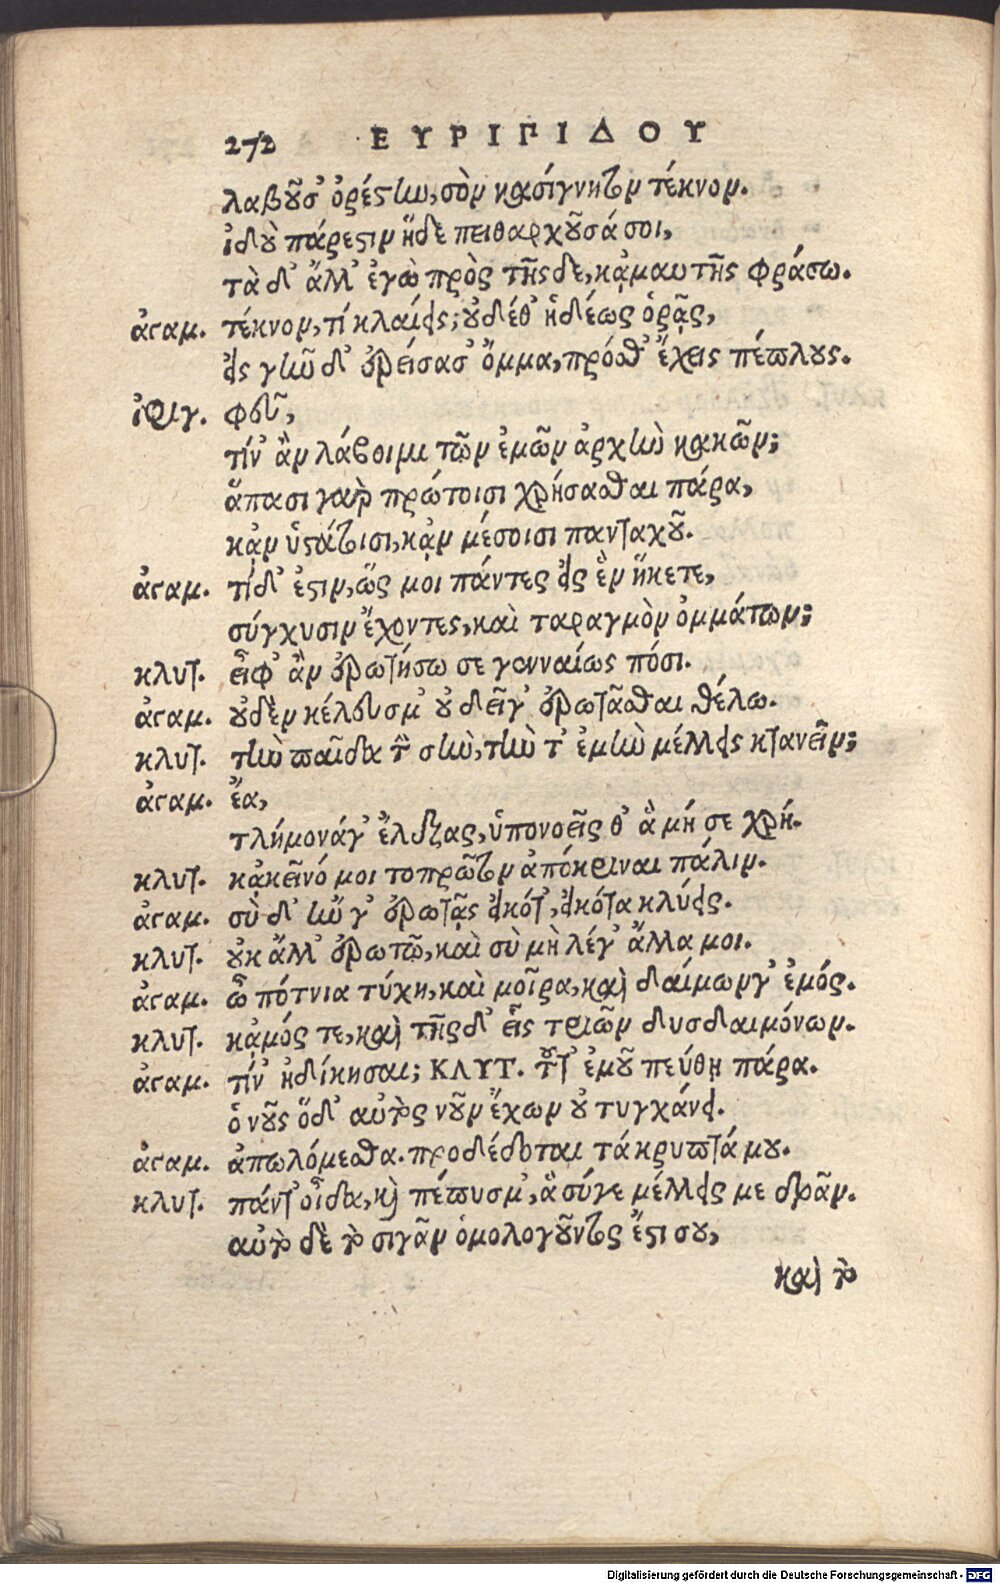 272 ΕΥΡΙΠΙΔΟΥ
λαβοῦσ' ὀρέστην, σὸν κασίγνητον τέκνον.
ἰδοὺ πάρεστιν ἥδε πειθαρχοῦσά σοι,
τὰ δ' ἄλλ' ἐγὼ πρὸς τῆσδε, κἀμαυτῆς φράσω.
ἀγαμ. τέκνον, τί κλαίεις; οὐδέθ' ἡδέως ὁρᾷς,
εἰς γῆν δ' ἐρείσασ' ὄμμα, πρόσθ' ἔχεις πέπλους.
ἰφιγ. φεῦ,
τίν' ἂν λάβοιμι τῶν ἐμῶν ἀρχὴν κακῶν;
ἅπασι γὰρ πρώτοισι χρήσασθαι πάρα,
κἀν ὑστάτοισι, κἀν μέσοισι πανταχοῦ.
ἀγαμ. τί δ' ἐστιν, ὥς μοι πάντες εἰς ἓν ἥκετε,
σύγχυσιν ἔχοντες, καὶ ταραγμὸν ὀμμάτων;
κλυτ. εἶφ' ἂν ἐρωτήσω σε γενναίως πόσι.
ἀγαμ. οὐδὲν κέλευσμ' οὐ δεῖ γ' ἐρωτᾶσθαι θέλω.
κλυτ. τὴν παῖδα τὴν σὴν, τὴν τ' ἐμὴν μέλλεις κτανεῖν;
ἀγαμ. ἔα,
τλήμονά γ' ἔλεξας, ὑπονοεῖς θ' ἃ μή σε χρή.
κλυτ. κἀκεῖνό μοι τοπρῶτον ἀπόκριναι πάλιν.
ἀγαμ. σὺ δ' ἢν γ' ἐρωτᾷς εἰκότ', εἰκότα κλύεις.
κλυτ. οὐκ ἄλλ' ἐρωτῶ, καὶ σὺ μὴ λέγ' ἄλλα μοι.
ἀγαμ. ὦ πότνια τύχη, καὶ μοῖρα, καὶ δαίμων γ' ἐμός.
κλυτ. κἀμός τε, καὶ τῆσδ' εἷς τριῶν δυσδαιμόνων.
ἀγαμ. τίν' ἠδίκησαι; ΚΛΥΤ. τοῦτ' ἐμοῦ πεύθῃ πάρα.
ὁ νοῦς ὅδ' αὐτὸς νοῦν ἔχων οὐ τυγχάνει.
ἀγαμ. ἀπωλόμεσθα. προδέδοται τὰ κρυπτά μου.
κλυτ. πάντ' οἶδα, καὶ πέπυσμ', ἃ σύγε μέλλεις με δρᾶν.
αὐτὸ δὲ τὸ σιγᾶν ὁμολογοῦντός ἐστι σου,
καὶ τὸ
Digitalisierung gefördert durch die Deutsche Forschungsgemeinschaft - DFG